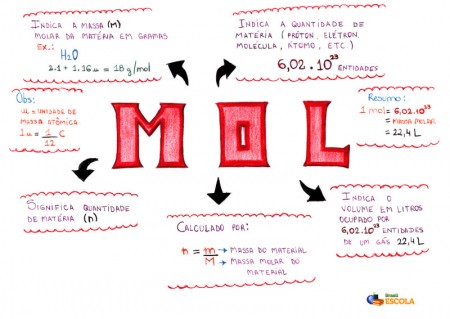 INDICA A MASSA (M)
MOLAR DA MATÉRIA EM GRAMAS
EX.:
H₂O
2.1 + 1.16u = 18g/mol
INDICA A QUANTIDADE DE
MATÉRIA (PRÓTON, ELÉTRON,
MOLÉCULA, ÁTOMO, ETC.)
6,02 . 10²³
ENTIDADES
Obs:
u = UNIDADE DE
MASSA ATÔMICA
1u = 1/12 C
MOL
Resumo:
1 mol = 6,02.10²³
= MASSA MOLAR
= 22,4 L
SIGNIFICA QUANTIDADE
DE MATÉRIA (n)
CALCULADO POR:
n = m → MASSA DO MATERIAL
M → MASSA MOLAR DO
MATERIAL
INDICA O
VOLUME EM LITROS
OCUPADO POR
6,02.10²³ ENTIDADES
DE UM GÁS 22,4L
Brasil
ESCOLA